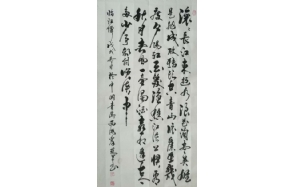 滚滚長江東逝水浪花淘盡英雄
是非成敗轉頭空青山依舊在幾
度夕陽紅白髮漁樵江渚上慣看
秋月春風一壺濁酒喜相逢古今
多少事都付笑談中